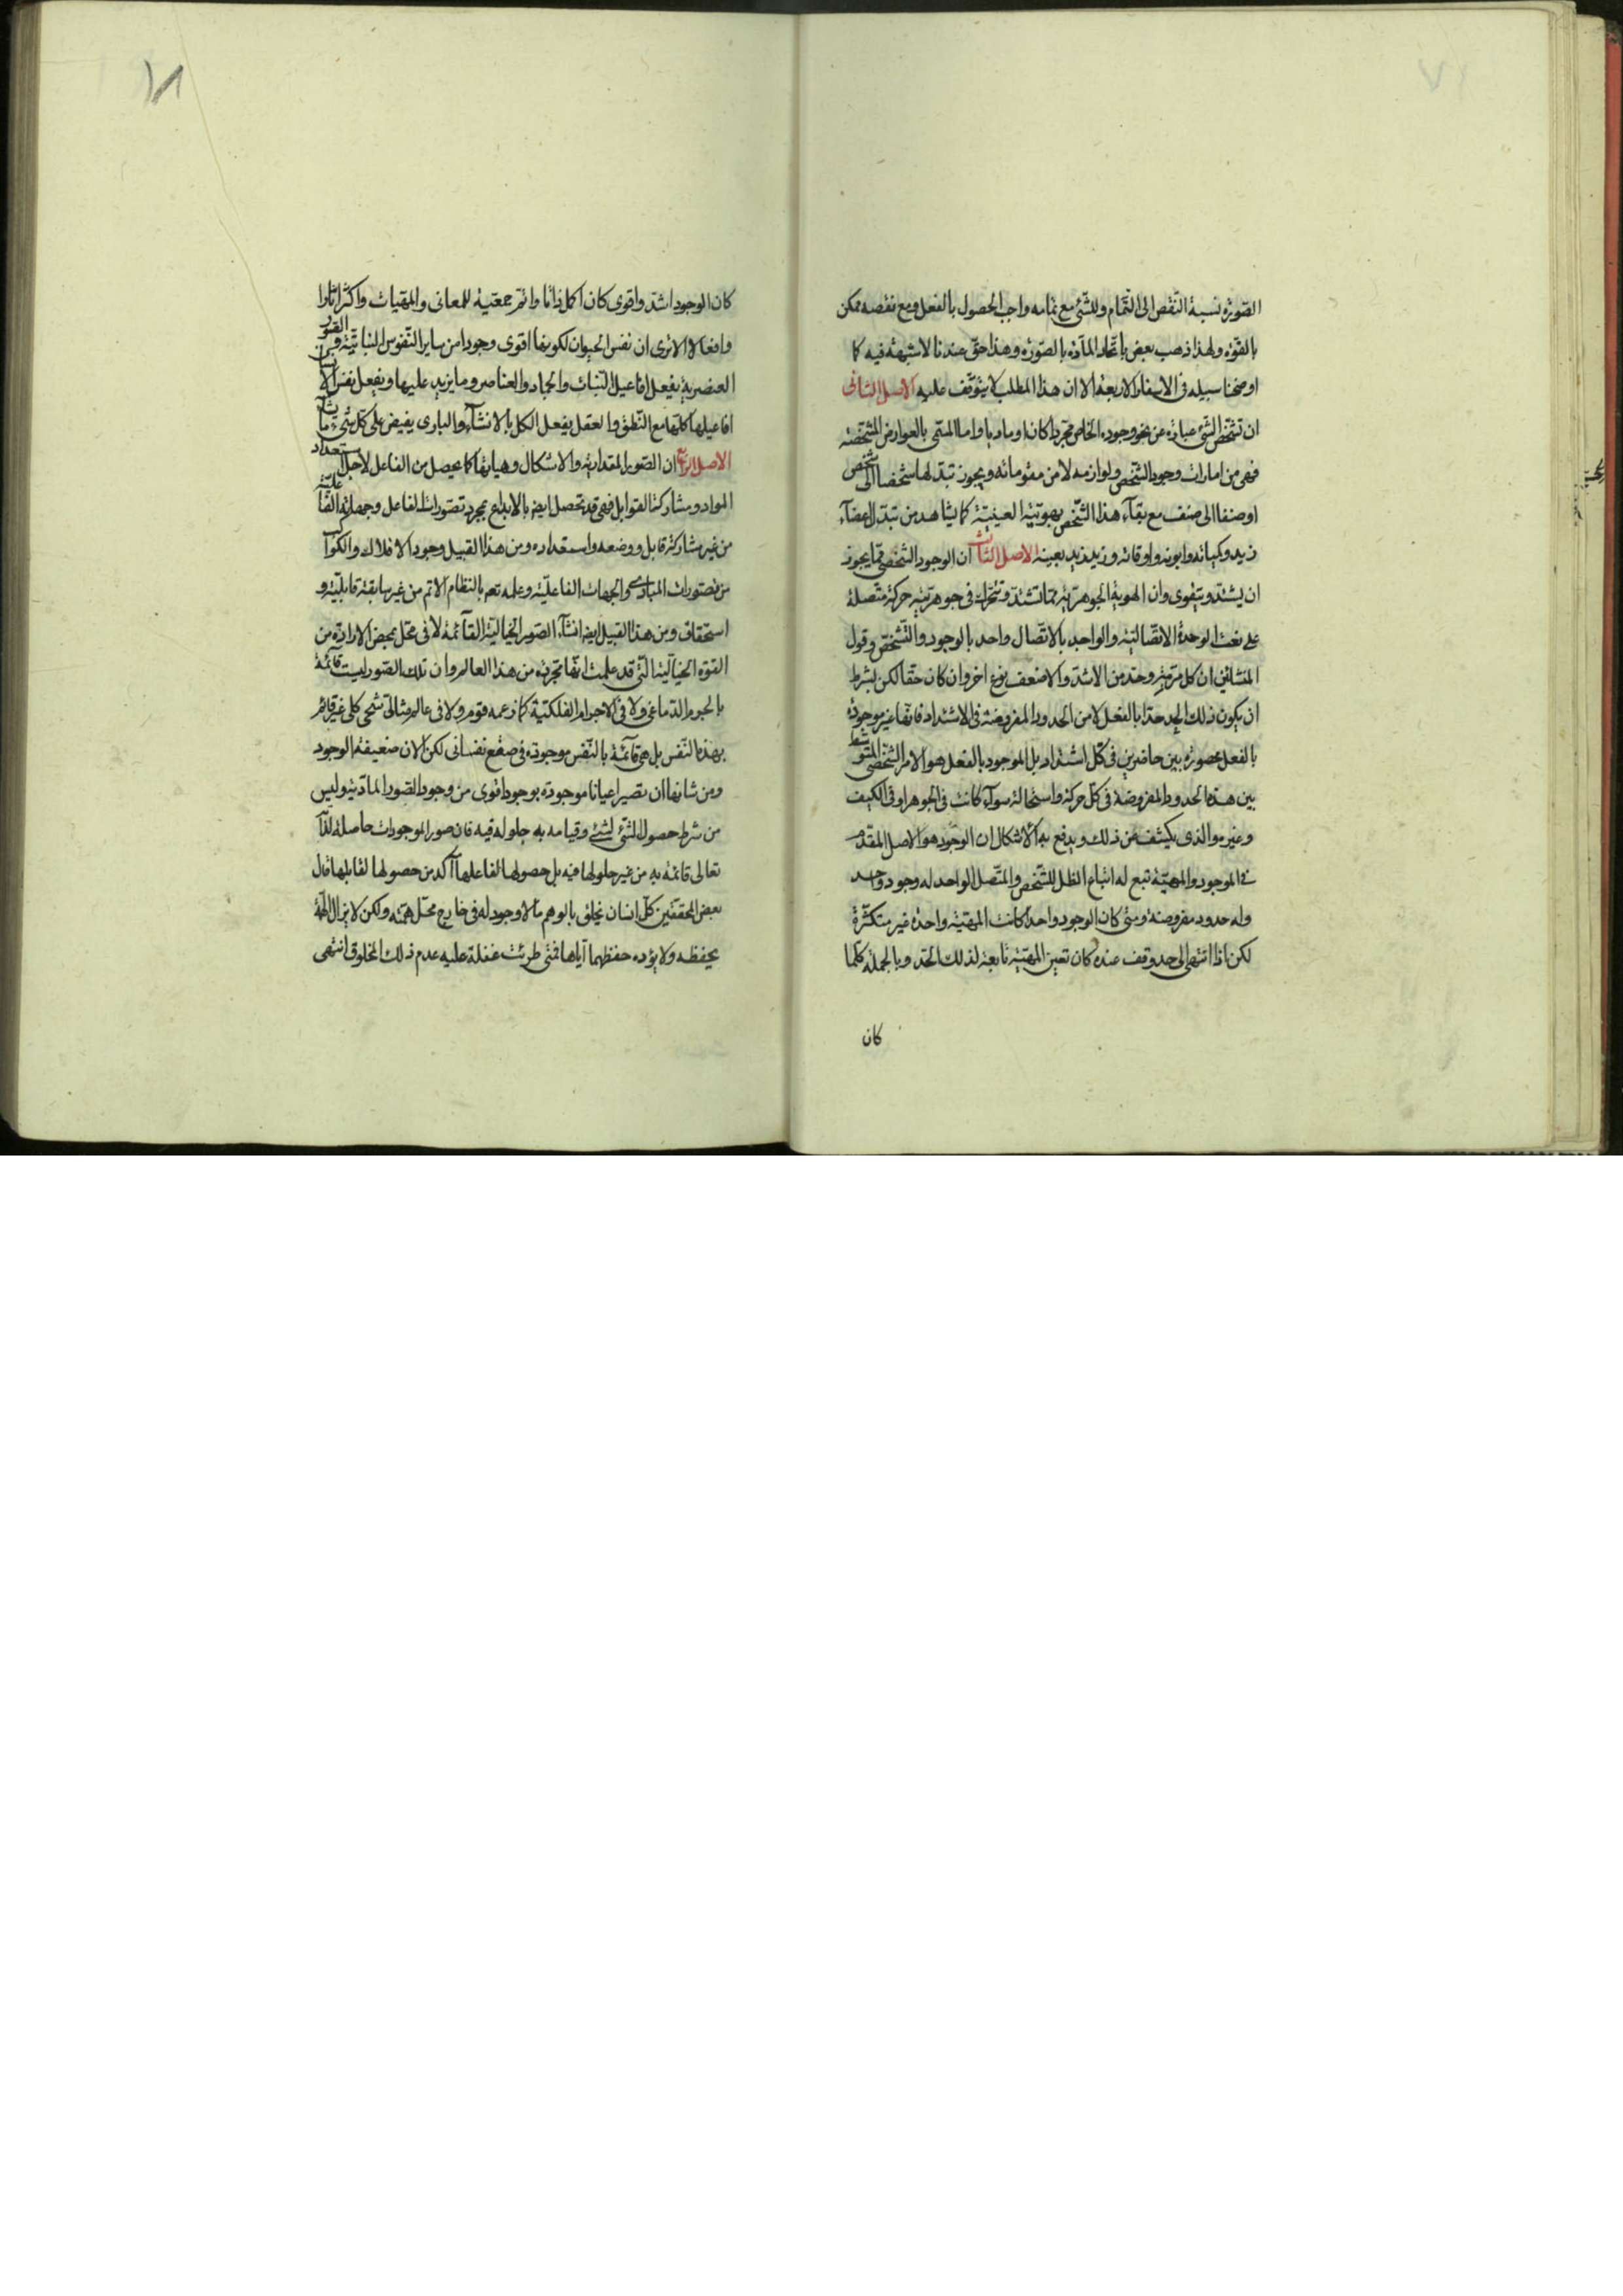 الصورة نسبة النقص الى التمام وللشئ مع تمامه واجب الحصول بالفعل ومع نقصه ممكن
بالقوة ولهذا ذهب بعض باتحاد المادة بالصورة وهذا حق عندنا لا شبهة فيه كما
اوضحنا سبيله فى الاسفار الاربعة الا ان هذا المطلب لا يتوقف عليه الاصل الثانى
ان تشخص الشئ عبارة عن نحو وجوده الخاص مجردا كان او ماديا واما المسمى بالعوارض المشخصة
فهى من امارات وجود الشخص ولوازمه لا من مقوماته ويجوز تبدلها شخصا الى شخص
او صنفا الى صنف مع بقاء هذا الشخص بهويته العينية كما يشاهد من تبدل اعضاء
زيد وكياته وايونه واوقاته وزيد زيد بعينه الاصل الثالث ان الوجود الشخصى مما يجوز
ان يشتد ويتقوى وان الهوية الجوهرية مما تشتد وتتحرك فى جوهريته حركة متصلة
على نعت الوحدة الاتصالية والواحد بالاتصال واحد بالوجود والتشخص وقول
المشائين ان كل مرتبة وحد من الاشد والاضعف نوع اخر وان كان حقا لكن بشرط
ان يكون ذلك الحد حدا بالفعل لا من الحدود المفروضة فى الاشتداد فانها غير موجودة
بالفعل محصورة بين حاضرين فى كل اشتداد بل الموجود بالفعل هو الامر الشخصى المتوسط
بين هذه الحدود المفروضة فى كل حركة واستحالة سواء كانت فى الجوهر او فى الكيف
وغيره والذى يكشف عن ذلك ويدفع به الاشكال ان الوجود هو الاصل المقدم
فى الموجود والمهية تبع له اتباع الظل للشخص والمتصل الواحد له وجود واحد
وله حدود مفروضة ومتى كان الوجود واحدا كانت المهية واحدة غير متكثرة
لكن اذا انتهى الى حد وقف عنده كان تعين المهية تابعة لذلك الحد وبالجملة كلما
كان
كان الوجود اشد واقوى كان اكمل ذاتا واتم جمعية للمعانى والمهيات واكثر اثارا
وافعالا الا ترى ان نفس الحيوان لكونها اقوى وجودا من ساير النفوس النباتية ومن الصور
العنصرية يفعل افاعيل النبات والجماد والعناصر وما يزيد عليها ويفعل نفس الانسان
افاعيلها كلها مع النطق والعقل يفعل الكل بالانشاء والبارى يفيض على كل شئ ما يشاء
الاصل الرابع ان الصور المقدارية والاشكال وهياتها كما يحصل من الفاعل لاجل استعداد
المواد ومشاركة القوابل فهى قد تحصل ايض بالابداع بمجرد تصورات الفاعل وجهاته الفاعلية
من غير مشاركة قابل ووضعه واستعداده ومن هذا القبيل وجود الافلاك والكواكب
من تصورات المبادى والجهات الفاعلية وعلمه تعه بالنظام الاتم من غير سابقة قابلية و
استحقاق ومن هذا القبيل ايضا انشاء الصور الخيالية القائمة لا فى محل بمحض الارادة من
القوة الخيالية التى قد علمت انها مجردة من هذا العالم وان تلك الصور ليست قائمة
بالجرم الدماغى ولا فى الاجرام الفلكية كما زعمه قوم ولا فى عالم مثالى شبحى كلى غير قائم
بهذه النفس بل هى قائمة بالنفس موجودة فى صقع نفسانى لكن الان ضعيفة الوجود
ومن شانها ان تصير اعيانا موجودة بوجود اقوى من وجود الصور المادية وليس
من شرط حصول الشئ لشئ وقيامه به حلوله فيه فان صور الموجودات حاصلة لله
تعالى قائمة به من غير حلولها فيه بل حصولها لفاعلها اكد من حصولها لقابلها قال
بعض المحققين كل انسان يخلق بالوهم ما لا وجود له فى خارج محل همته ولكن لا يزال الهمة
يحفظه ولا يؤده حفظهما اياها فمتى طرئت غفلة عليه عدم ذلك المخلوق انتهى